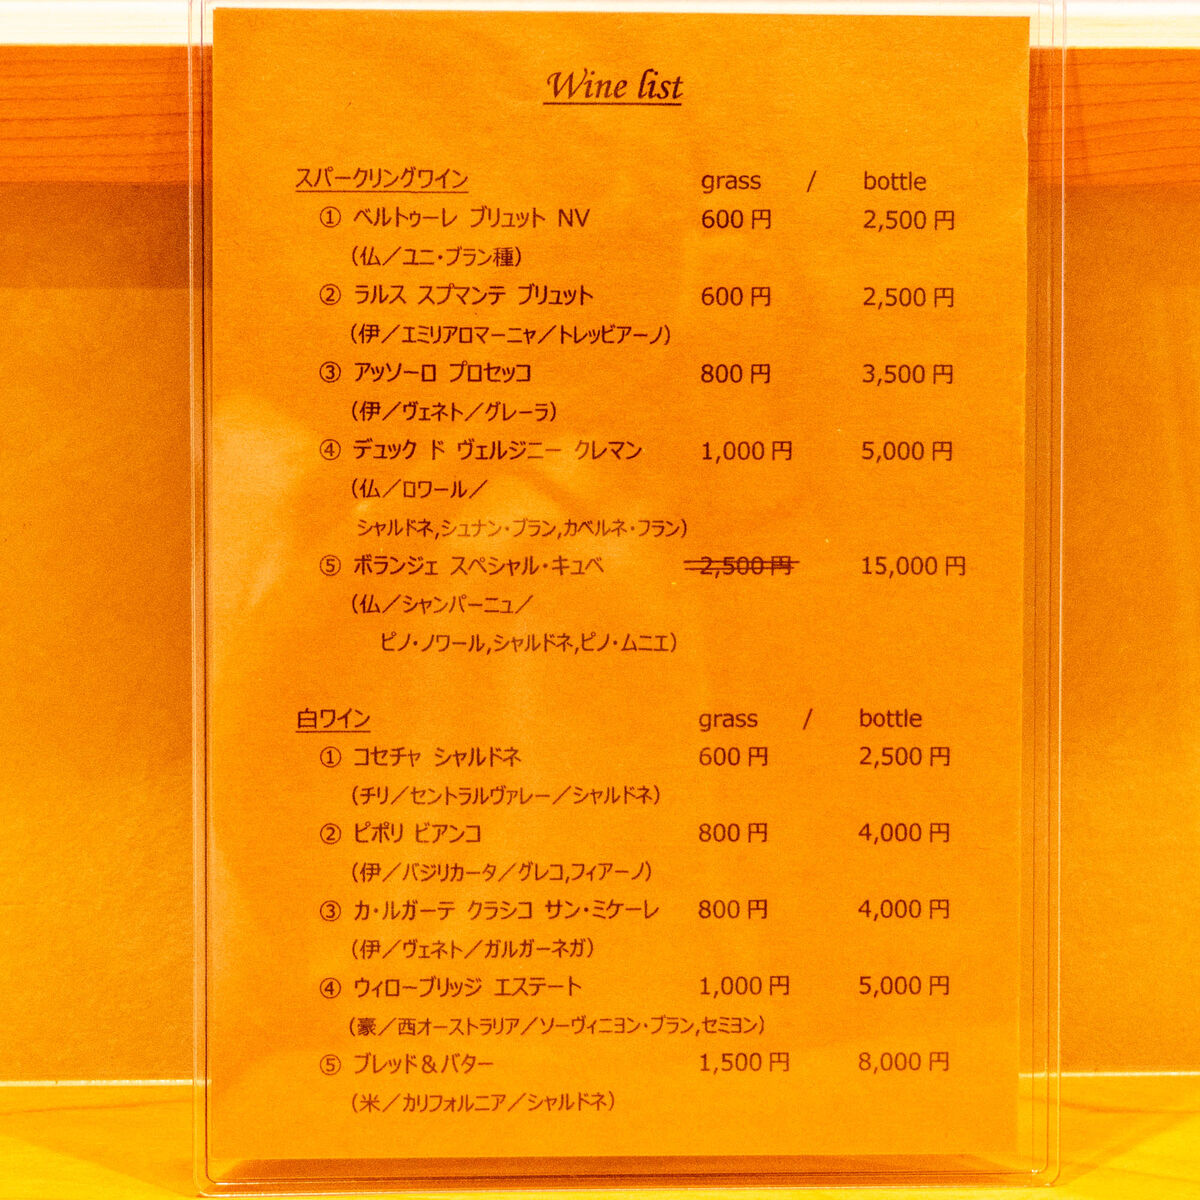 Wine list
スパークリングワイン grass / bottle
① ベルトゥーレ ブリュット NV 600円 2,500円
（仏／ユニ・ブラン種）
② ラルス スプマンテ ブリュット 600円 2,500円
（伊／エミリアロマーニャ／トレッビアーノ）
③ アッソーロ プロセッコ 800円 3,500円
（伊／ヴェネト／グレーラ）
④ デュック ド ヴェルジニー クレマン 1,000円 5,000円
（仏／ロワール／
シャルドネ,シュナン・ブラン,カベルネ・フラン）
⑤ ボランジェ スペシャル・キュベ 2,500円 15,000円
（仏／シャンパーニュ／
ピノ・ノワール,シャルドネ,ピノ・ムニエ）
白ワイン grass / bottle
① コセチャ シャルドネ 600円 2,500円
（チリ／セントラルヴァレー／シャルドネ）
② ピポリ ビアンコ 800円 4,000円
（伊／バジリカータ／グレコ,フィアーノ）
③ カ・ルガーテ クラシコ サン・ミケーレ 800円 4,000円
（伊／ヴェネト／ガルガーネガ）
④ ウィローブリッジ エステート 1,000円 5,000円
（豪／西オーストラリア／ソーヴィニヨン・ブラン,セミヨン）
⑤ ブレッド＆バター 1,500円 8,000円
（米／カリフォルニア／シャルドネ）